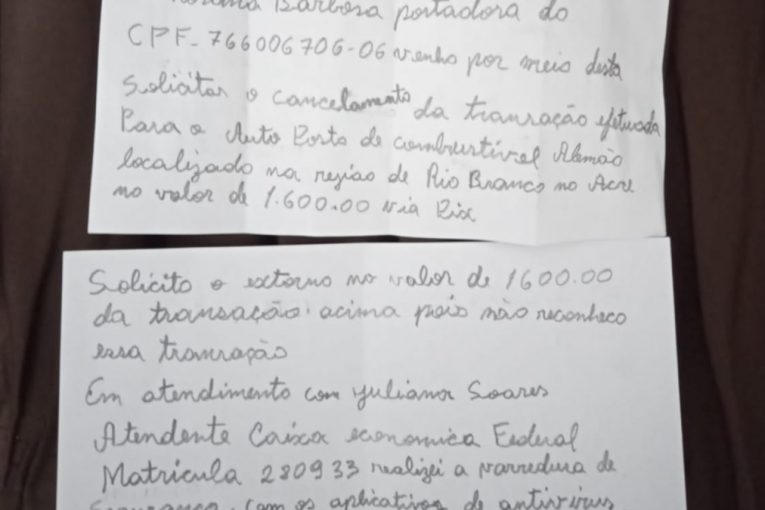 Barbosa portadora do
CPF-766006706-06 venho por meio desta
Solicitar o cancelamento da transação efetuada
Para o Auto Posto de combustível Alemão
localizado na região de Rio Branco no Acre
no valor de 1.600.00 via Pix
Solicito o extorno no valor de 1600.00
da transação acima pois não reconheco
essa transação
Em atendimento com Juliana Soares
Atendente Caixa economica Federal
Matricula 280933 realizei a varredura de
Segurança com os aplicativos de antivirus